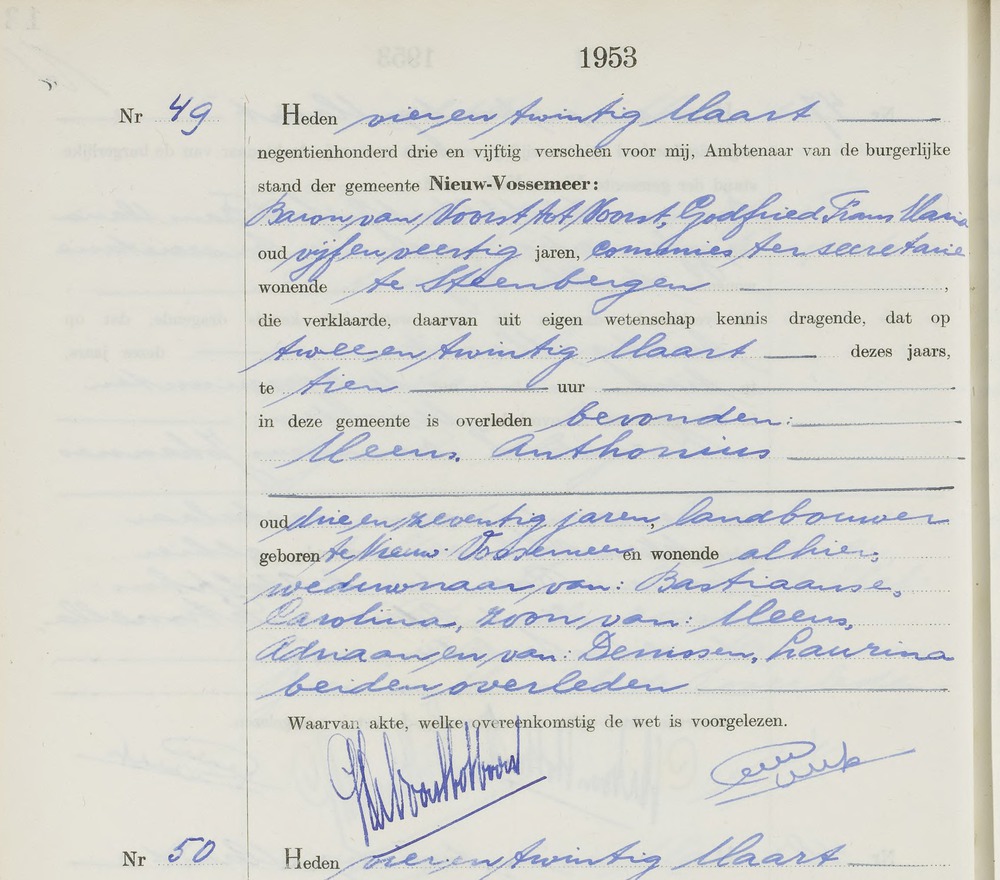 1953
Nr 49 Heden vier en twintig Maart
negentienhonderd drie en vijftig verscheen voor mij, Ambtenaar van de burgerlijke
stand der gemeente Nieuw-Vossemeer:
Baron van Voorst tot Voorst, Godfried Frans Maria
oud vijf en veertig jaren, commies ter secretarie
wonende te Steenbergen ,
die verklaarde, daarvan uit eigen wetenschap kennis dragende, dat op
twee en twintig Maart dezes jaars,
te tien uur
in deze gemeente is overleden bevonden:
Meeus, Anthonius
oud drie en zeventig jaren, landbouwer
geboren te Nieuw-Vossemeer en wonende alhier,
weduwnaar van: Bastiaanse,
Carolina, zoon van: Meeus,
Adriaan en van: Denissen, Laurina
beiden overleden
Waarvan akte, welke overeenkomstig de wet is voorgelezen.
Nr 50 Heden vier en twintig Maart